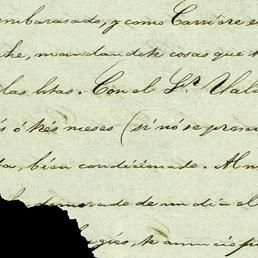 embarasado, y como Carrière e
he, mandandote cosas que
las btas. Con el Sr. Val
s ó trés meses (si nó se presen
ta, bien condicionado. Al m
demorado de un dia el
te anuncio